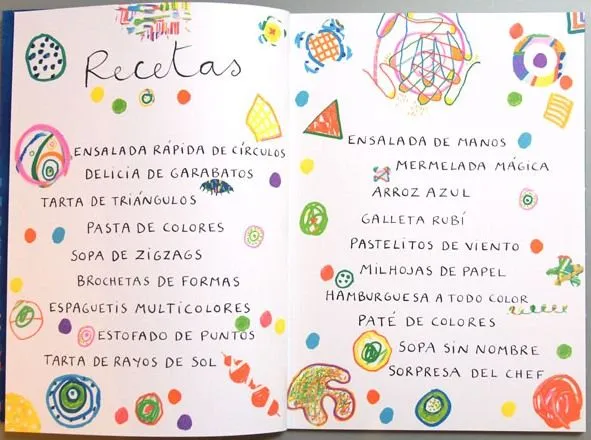 Recetas
ENSALADA RÁPIDA DE CÍRCULOS
DELICIA DE GARABATOS
TARTA DE TRIÁNGULOS
PASTA DE COLORES
SOPA DE ZIGZAGS
BROCHETAS DE FORMAS
ESPAGUETIS MULTICOLORES
ESTOFADO DE PUNTOS
TARTA DE RAYOS DE SOL
ENSALADA DE MANOS
MERMELADA MÁGICA
ARROZ AZUL
GALLETA RUBÍ
PASTELITOS DE VIENTO
MILHOJAS DE PAPEL
HAMBURGUESA A TODO COLOR
PATÉ DE COLORES
SOPA SIN NOMBRE
SORPRESA DEL CHEF